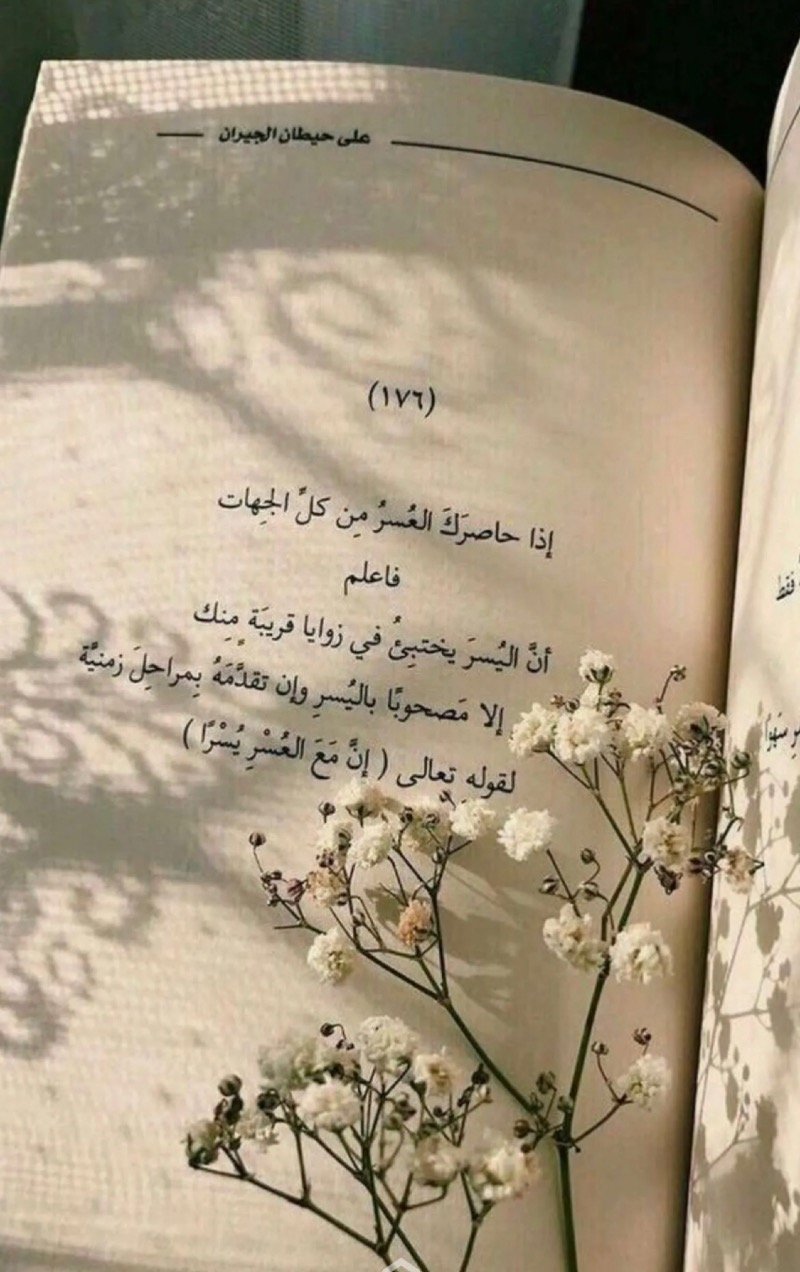 على حيطان الجيران
(١٧٦)
إذا حاصرَكَ العُسرُ مِن كلِّ الجِهات
فاعلم
أنَّ اليُسرَ يختبِئُ في زوايا قريبَة مِنِك
إلا مَصحوبًا باليُسرِ وإن تقدَّمَهُ بِمراحِلَ زمنيَّة
لقوله تعالى ( إنَّ مَعَ العُسْرِ يُسْرًا )
فقط